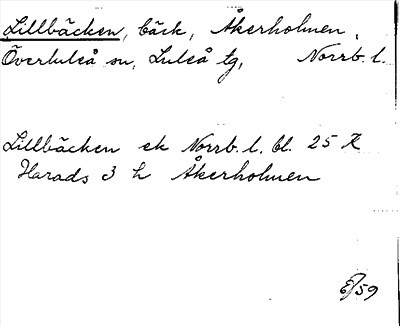 Lillbäcken, bäck, Åkerholmen,
Överluleå sn, Luleå tg, Norrb. l.
Lillbäcken ek Norrb. l. bl. 25 K
Harads 3 h Åkerholmen
E/59